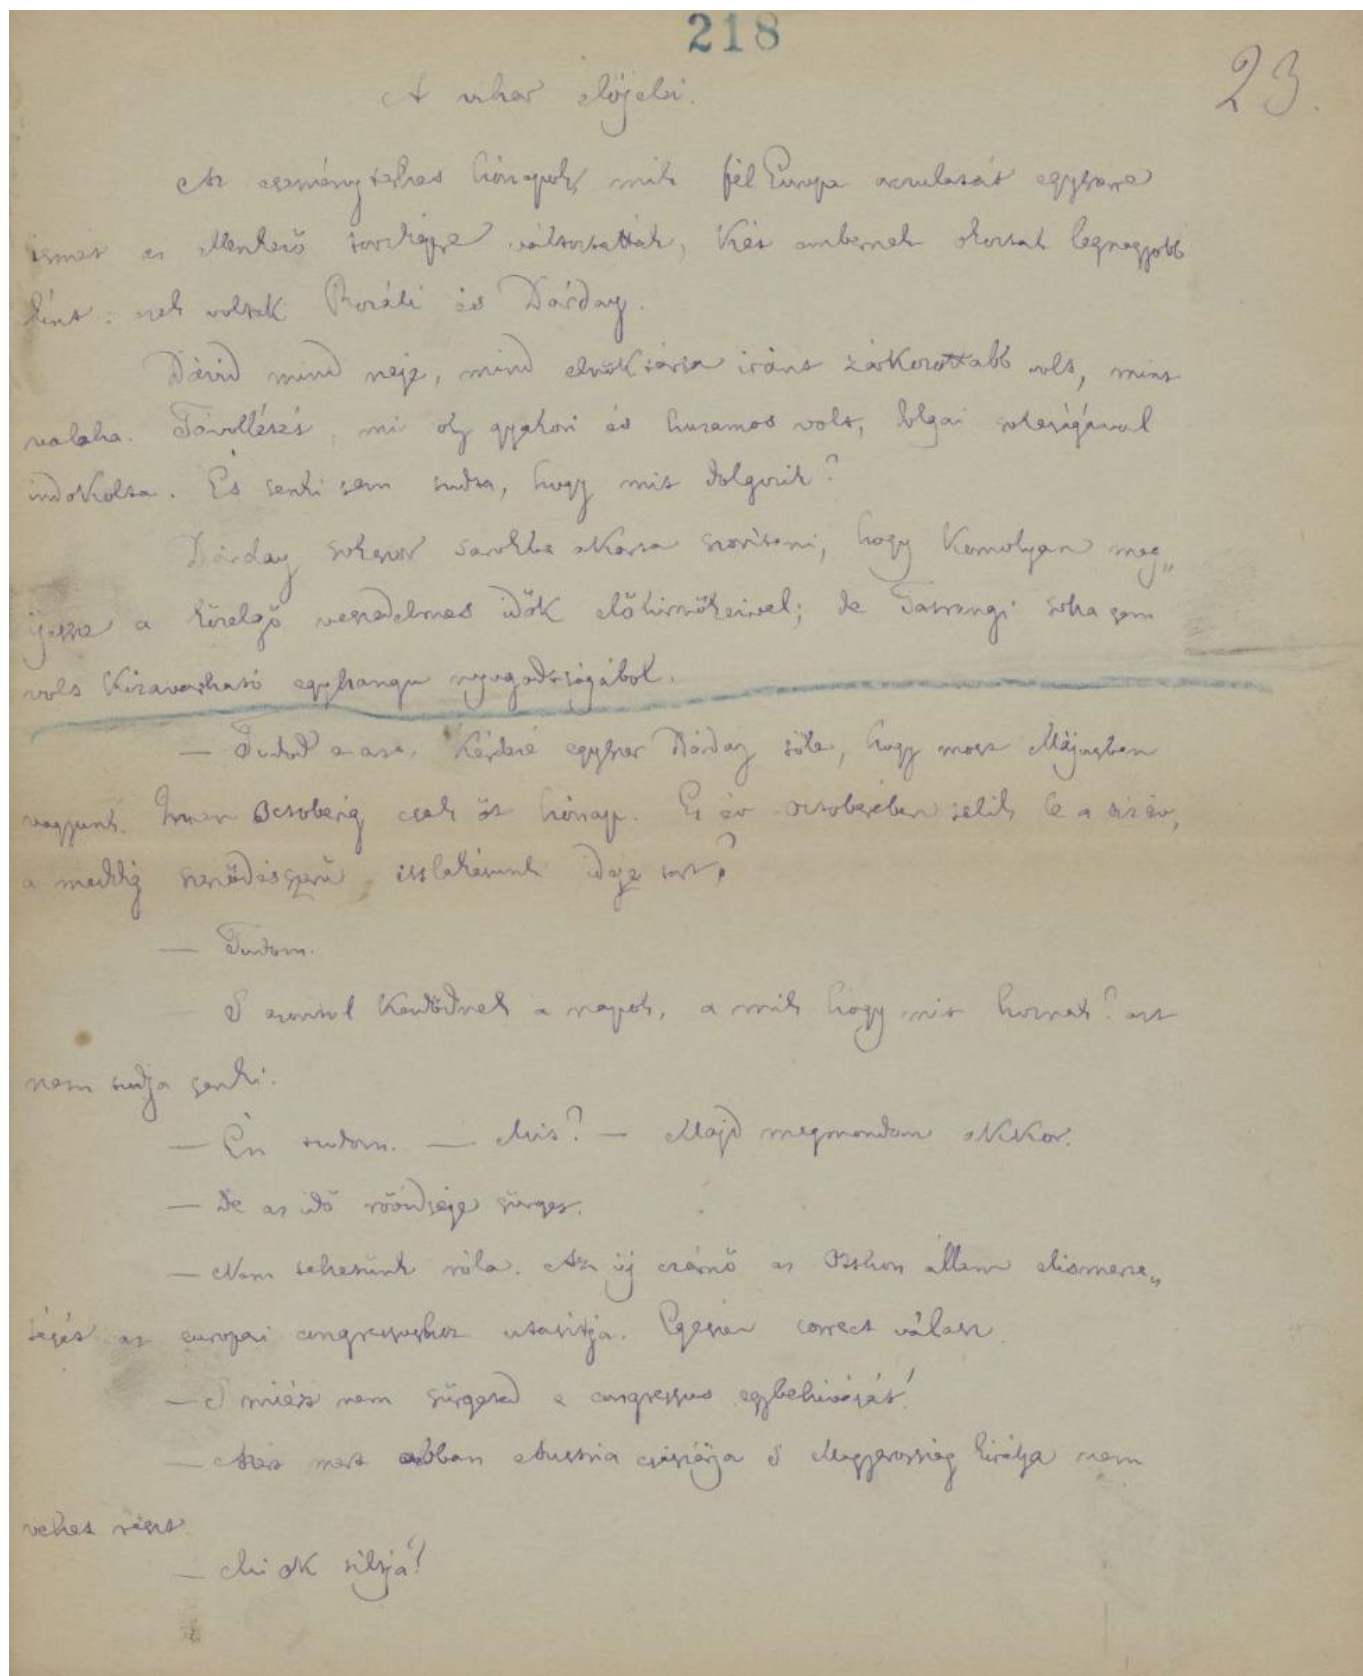 218
23.
A vihar előjelei.
Az eseményteljes hónapok, mik fél Europa arculatát egyszerre
ismét az ellenkező torzképre változtatták, két embernek okoztak legnagyobb
kínt: ezek voltak Rozáli és Dárday.
Dávid mind neje, mind elnöktársa iránt zárkozottabb volt, mint
valaha. Távollétét, mi oly gyakori és huzamos volt, dolgai sokaságával
indokolta. És senki sem tudta, hogy mit dolgozik?
Dárday sokszor sarokba akarta szorítani, hogy komolyan meg„
ijessze a közelgő veszedelmes idők előhirnökeivel; de Tatrangi soha sem
volt kizavarható egyhangu nyugodtságából.
— Tudod e azt, kérdezé egyszer Dárday tőle, hogy most Májusban
vagyunk. Innen Octoberig csak öt hónap. Ez év octoberében telik le a tiz év,
a meddig szerződésszerű itt lakásunk ideje tart?
— Tudom.
S azontul kezdődnek a napok, a mik hogy mit hoznak? azt
nem tudja senki.
— Én tudom. — Mit? — Majd megmondom akkor.
— De az idő rövidsége sürget.
— Nem tehetünk róla. Az új czárnő az Otthon állam elismerte„
tését az europai congressushoz utasítja. Egészen correct válasz.
— S miért nem sürgeted e congressus egybehivását!
— Azért mert abban Austria császárja s Magyarország királya nem
vehet részt.
— Mi ok tiltja!